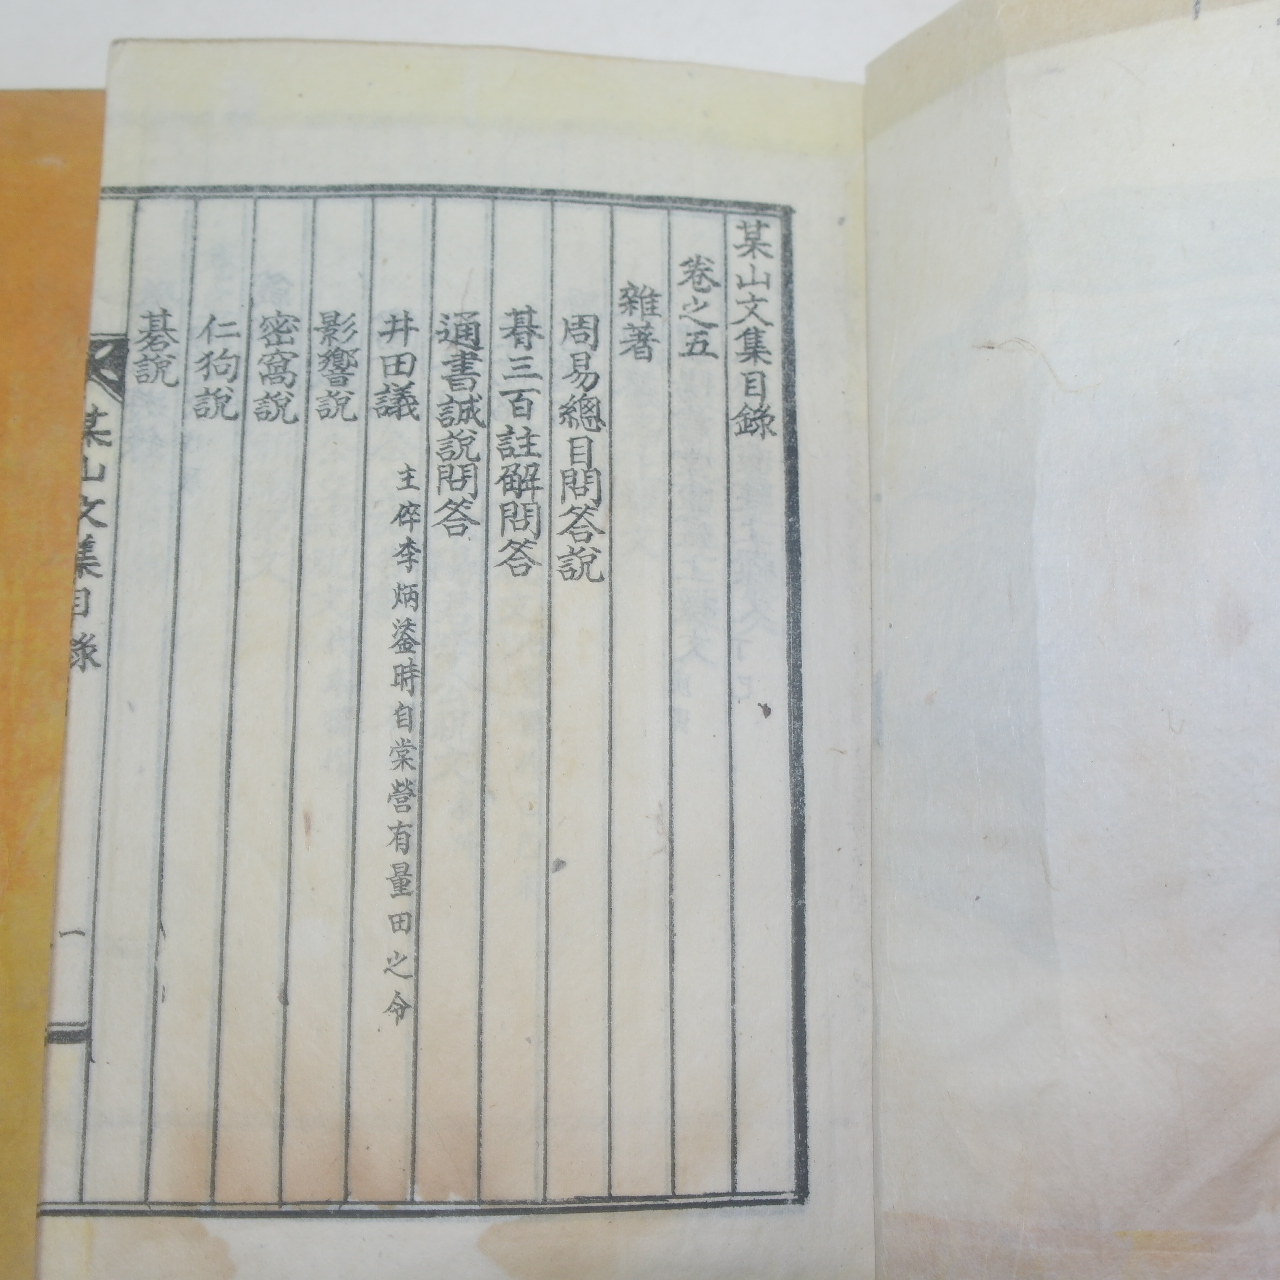 某山文集目錄
卷之五
雜著
周易總目問答說
朞三百註解問答
通書誠說問答
井田議 主倅李炳瀣時自棠營有量田之令
影響說
密窩說
仁狗說
碁說
某山文集目錄 一